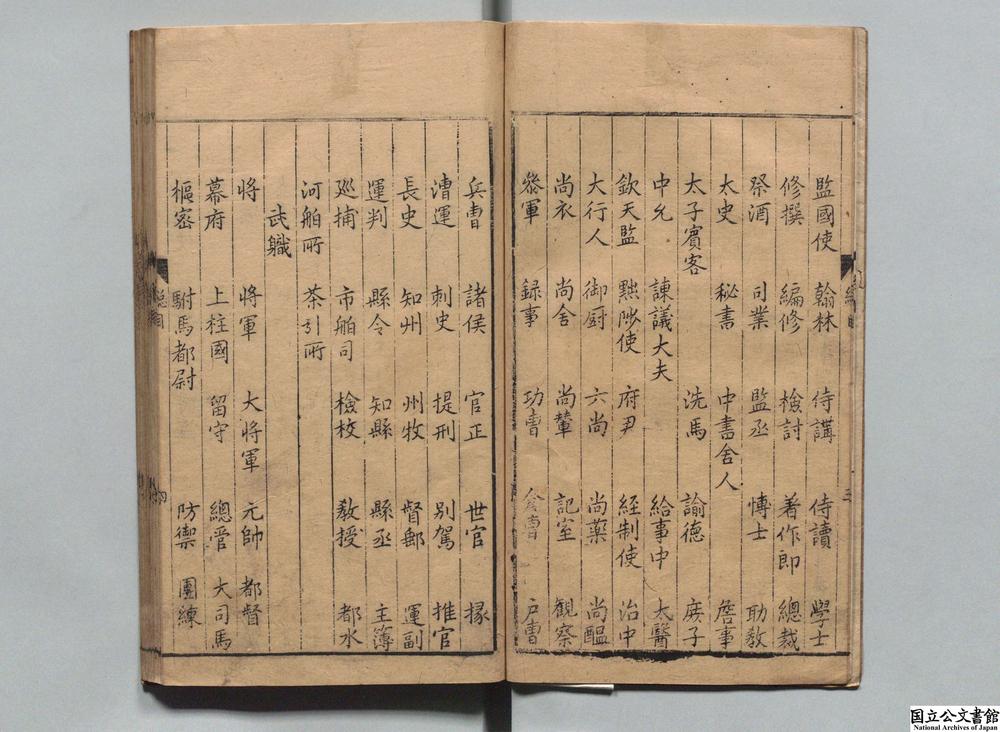 監國使 翰林 侍講 侍讀 學士
修撰 編修 檢討 著作郎 總裁
祭酒 司業 監丞 博士 助教
太史 秘書 中書舍人 詹事
太子賓客 洗馬 諭德 庶子
中允 諫議大夫 給事中 太醫
欽天監 黜陟使 府尹 經制使 治中
大行人 御厨 六尚 尚藥 尚醞
尚衣 尚舍 尚輦 記室 觀察
叅軍 録事 功曹 倉曹 户曹
兵曹 諸侯 官正 世官 掾
漕運 刺史 提刑 别駕 推官
長史 知州 州牧 督郵 運副
運判 縣令 知縣 縣丞 主簿
廵捕 市舶司 檢校 教授 都水
河舶所 茶引所
武職
将 将軍 大将軍 元帥 都督
幕府 上柱國 留守 總管 大司馬
樞密 駙馬都尉 防禦 團練
三
四
国立公文書館
National Archives of Japan